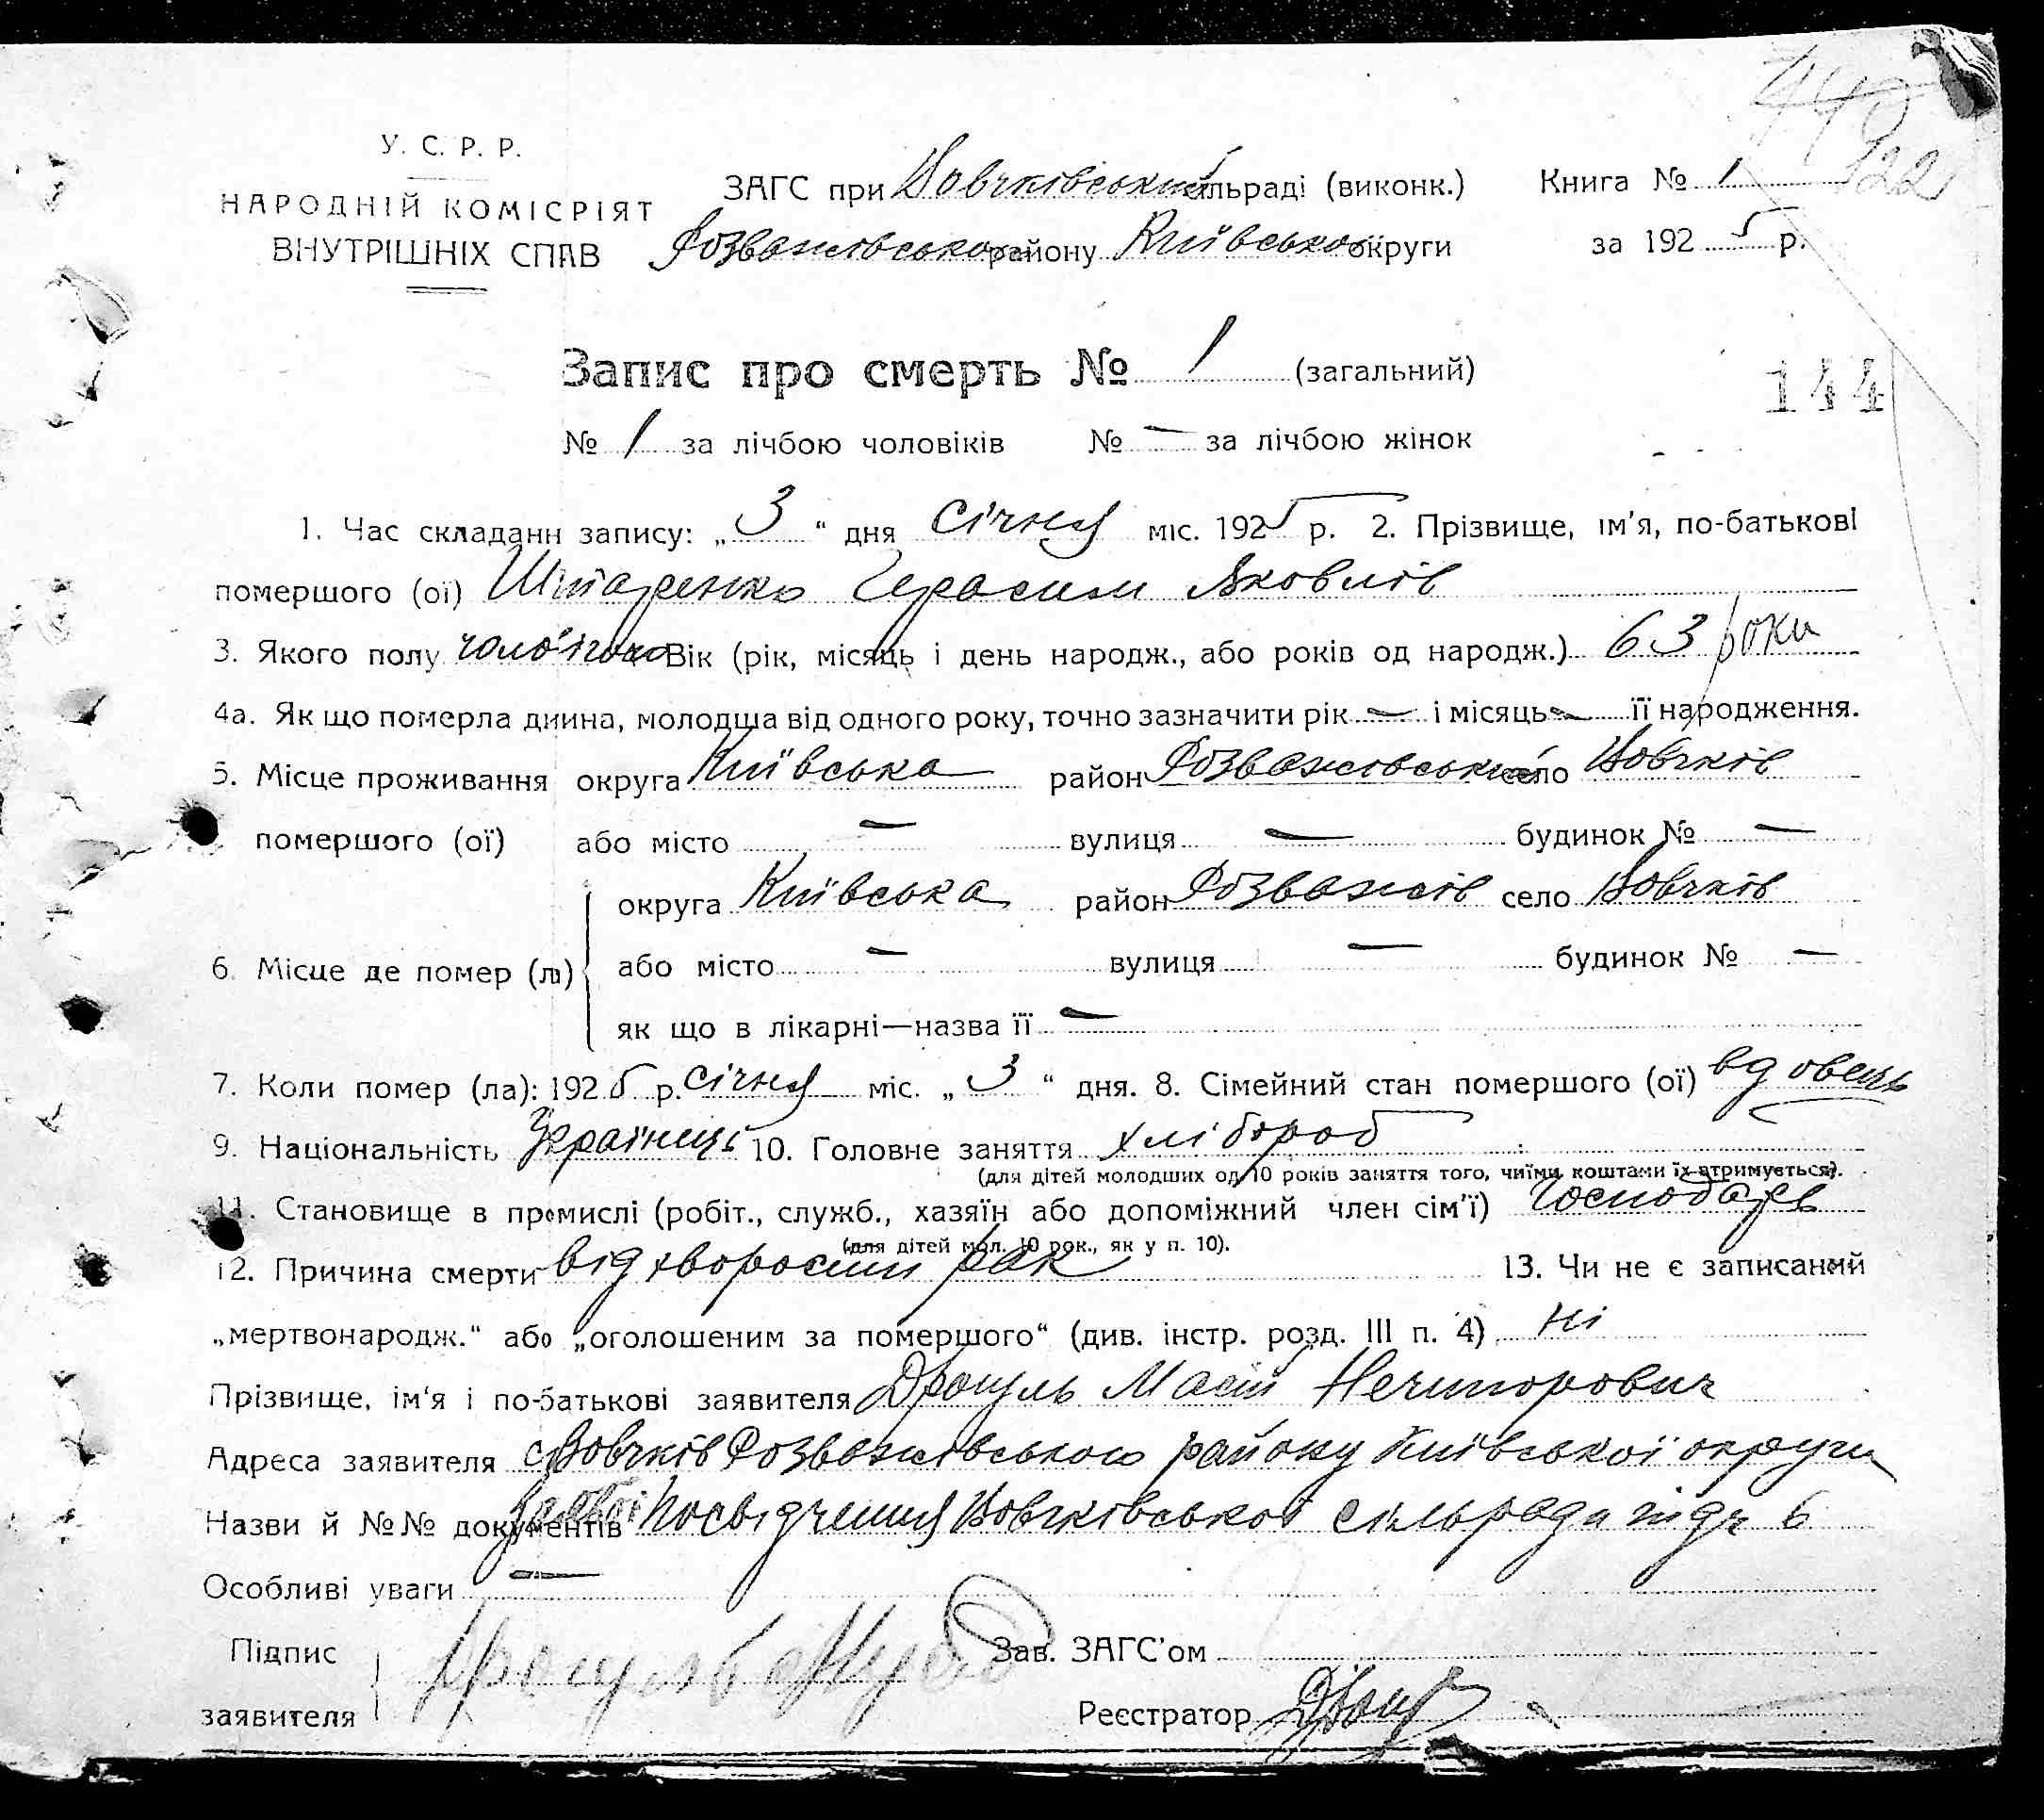 У. С. Р. Р.
НАРОДНІЙ КОМІСРІЯТ
ВНУТРІШНІХ СПАВ
ЗАГС при Вовчківський сільраді (виконк.)
Розважівського району Київської округи
Книга № 1
за 1925 р.
122
144
Запис про смерть № 1 (загальний)
№ 1 за лічбою чоловіків № — за лічбою жінок
1. Час складанн запису: „3“ дня січня міс. 1925 р. 2. Прізвище, ім'я, по-батькові
помершого (ої) Шпаренко Герасим Яковлів
3. Якого полу чоловічого Вік (рік, місяць і день народж., або років од народж.) 63 роки
4а. Як що померла диина, молодша від одного року, точно зазначити рік — і місяць — її народження.
5. Місце проживання округа Київська район Розважівський село Вовчків
помершого (ої) або місто — вулиця — будинок № —
округа Київська район Розважів село Вовчків
6. Місце де помер (ла) або місто — вулиця — будинок № —
як що в лікарні—назва її —
7. Коли помер (ла): 1925 р. січня міс. „3“ дня. 8. Сімейний стан помершого (ої) вдовець
9. Національність Українець 10. Головне заняття хлібороб
(для дітей молодших од 10 років заняття того, чиїми коштами їх втримується).
11. Становище в промислі (робіт., служб., хазяїн або допоміжний член сім'ї) Господарь
(для дітей мол. 10 рок., як у п. 10).
12. Причина смерти від хворости рак 13. Чи не є записаний
„мертвонародж.“ або „оголошеним за помершого“ (див. інстр. розд. III п. 4) ні
Прізвище, ім'я і по-батькові заявителя Дроцуль Мусій Нечипорович
Адреса заявителя с. Вовчків Розважівського району Київської округи
Назви й №№ документів Посвідчення Вовчківської сільради під ч 6
Особливі уваги —
Підпис
заявителя
Зав. ЗАГС'ом
Реєстратор